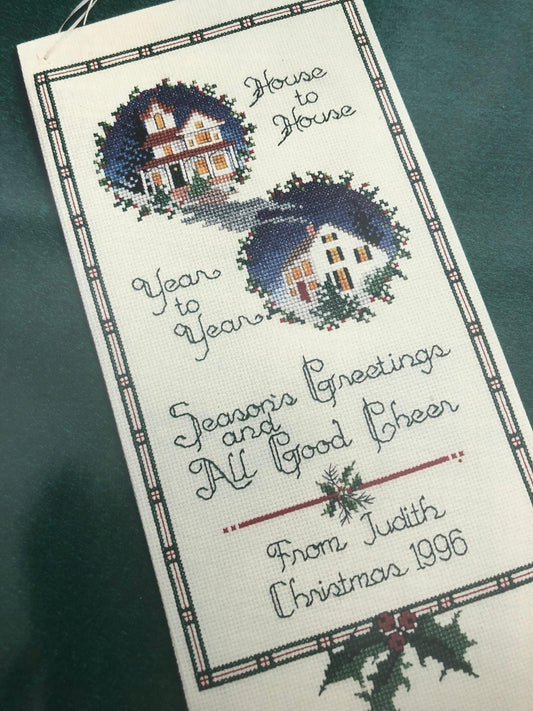 House
to
House
Year
to
Year
Season's Greetings
and
All Good Cheer
From Judith
Christmas 1996